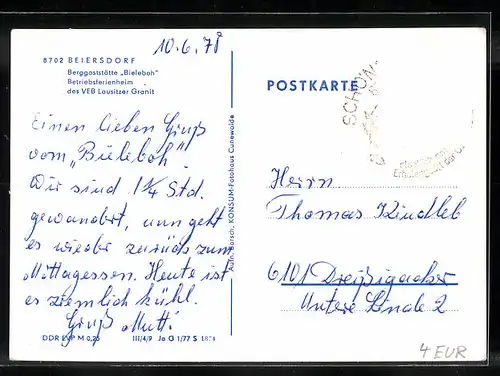 10.6.78
8702 BEIERSDORF
Berggaststätte „Bieleboh"
Betriebsferienheim
des VEB Lausitzer Granit
Einen lieben Gruß
vom „Bieleboh".
Wir sind 1 1/4 Std.
gewandert, nun geht
es wieder zurück zum
Mittagessen. Heute ist
es ziemlich kühl.
Gruß Mutti
DDR EVP M 0,20 III/4/9 Jo G 1/77 S
KONSUM-Fotohaus Cunewalde
POSTKARTE
Herrn
Thomas Kindleb
6101 Dreißigacker
Untere Linde 2
4 EUR